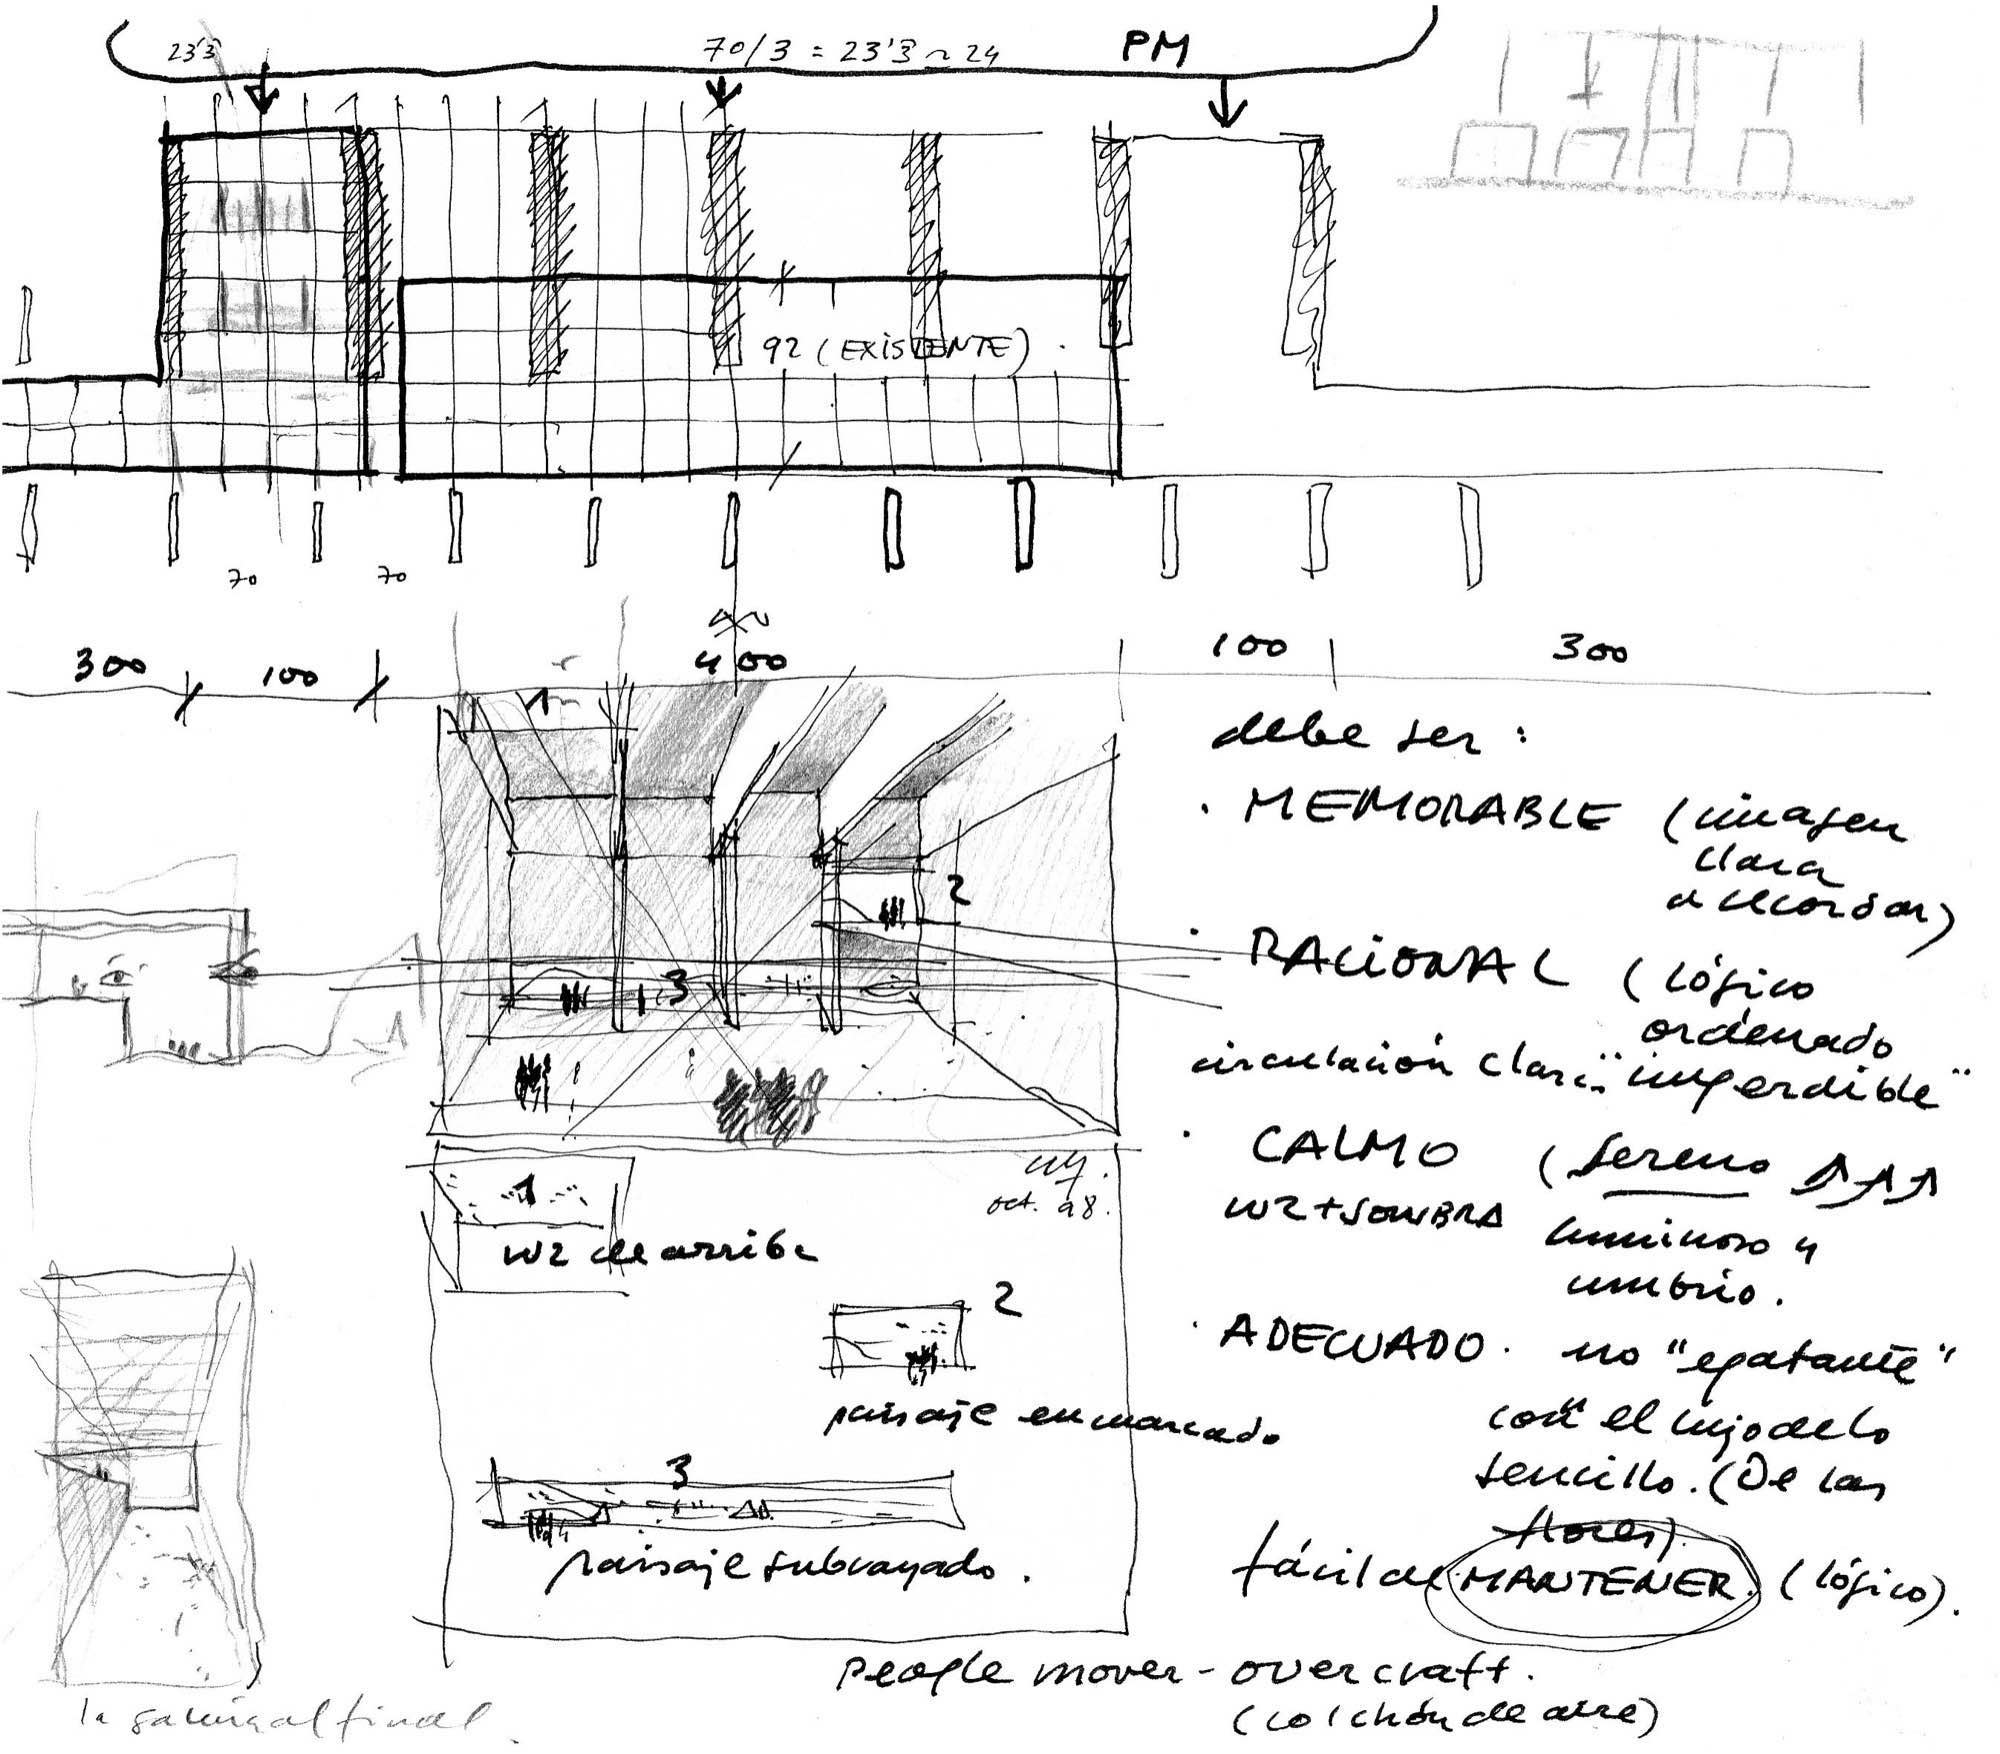 23'3
70/3 = 23'3 ~ 24
PM
92 (EXISTENTE).
70
70
300
100
400
100
300
1
2
3
debe ser:
· MEMORABLE (imagen
clara
a recordar)
· RACIONAL (lógico
ordenado
circulación clara "imperdible"
· CALMO (sereno
LUZ+SOMBRA
luminoso y
umbrío.
· ADECUADO. no "epatante"
con el lujo de lo
sencillo. (De las
flores).
fácil de MANTENER. (lógico).
oct. 98.
1
luz de arriba
2
paisaje enmarcado
3
paisaje subrayado.
people mover - overcraft.
(colchón de aire)
la galería al final.